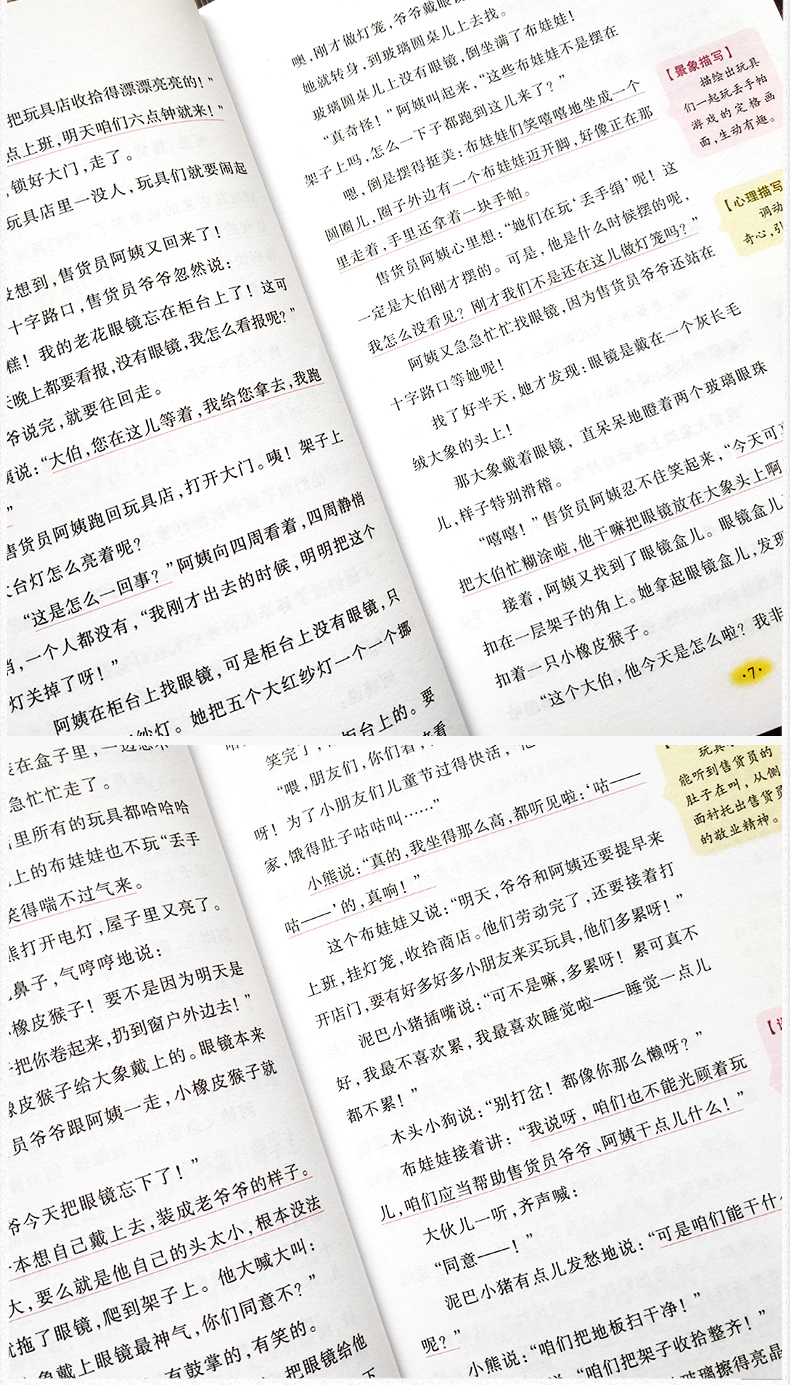 把玩具店收拾得漂漂亮亮的！”
点上班，明天咱们六点钟就来！”
锁好大门，走了。
玩具店里一没人，玩具们就要闹起
想到，售货员阿姨又回来了！
十字路口，售货员爷爷忽然说：
糕！我的老花眼镜忘在柜台上了！这可
晚上都要看报，没有眼镜，我怎么看报呢？”
爷说完，就要往回走。
说：“大伯，您在这儿等着，我给您拿去，我跑
”
售货员阿姨跑回玩具店，打开大门。咦！架子上
台灯怎么亮着呢？
“这是怎么一回事？”阿姨向四周看着，四周静悄
悄，一个人都没有，“我刚才出去的时候，明明把这个
灯关掉了呀！”
阿姨在柜台上找眼镜，可是柜台上没有眼镜，只
纱灯。她把五个大红纱灯一个一个挪
柜台上的。要
噢，刚才做灯笼，爷爷戴眼
她就转身，到玻璃圆桌儿上去找。
玻璃圆桌儿上没有眼镜，倒坐满了布娃娃！
“真奇怪！”阿姨叫起来，“这些布娃娃不是摆在
架子上吗，怎么一下子都跑到这儿来了？”
嗯，倒是摆得挺美：布娃娃们笑嘻嘻地坐成一个
圆圈儿，圈子外边有一个布娃娃迈开脚，好像正在那
里走着，手里还拿着一块手帕。
售货员阿姨心里想：“她们在玩‘丢手绢’呢！这
一定是大伯刚才摆的。可是，他是什么时候摆的呢，
我怎么没看见？刚才我们不是还在这儿做灯笼吗？”
阿姨又急急忙忙找眼镜，因为售货员爷爷还站在
十字路口等她呢！
找了好半天，她才发现：眼镜是戴在一个灰长毛
绒大象的头上！
那大象戴着眼镜，直呆呆地瞪着两个玻璃眼珠
儿，样子特别滑稽。
“嘻嘻！”售货员阿姨忍不住笑起来，“今天可
把大伯忙糊涂啦，他干嘛把眼镜放在大象头上啊
接着，阿姨又找到了眼镜盒儿。眼镜盒儿
扣在一层架子的角上。她拿起眼镜盒儿，发现
扣着一只小橡皮猴子。
“这个大伯，他今天是怎么啦？我非
·7·
【景象描写】
描绘出玩具
们一起玩丢手帕
游戏的定格画
面，生动有趣。
【心理描写
调动
奇心，引
在盒子里，一边
急忙忙走了。
里所有的玩具都哈哈哈
上的布娃娃也不玩“丢手
笑得喘不过气来。
熊打开电灯，屋子里又亮了。
鼻子，气哼哼地说：
橡皮猴子！要不是因为明天是
把你卷起来，扔到窗户外边去！”
橡皮猴子给大象戴上的。眼镜本来
员爷爷跟阿姨一走，小橡皮猴子就
爷今天把眼镜忘下了！”
本想自己戴上去，装成老爷爷的样子。
大，要么就是他自己的头太小，根本没法
就拖了眼镜，爬到架子上。他大喊大叫：
象戴上眼镜最神气，你们同意不？”
有鼓掌的，有笑的。
把眼镜给他
下
笑完了，
“喂，朋友们，你们看，
呀！为了小朋友们儿童节过得快活，
家，饿得肚子咕咕叫……”
小熊说：“真的，我坐得那么高，都听见啦：‘咕——
咕——’的，真响！”
这个布娃娃又说：“明天，爷爷和阿姨还要提早来
上班，挂灯笼，收拾商店。他们劳动完了，还要接着打
开店门，要有好多好多小朋友来买玩具，他们多累呀！”
泥巴小猪插嘴说：“可不是嘛，多累呀！累可真不
好，我最不喜欢累，我最喜欢睡觉啦——睡觉一点儿
都不累！”
木头小狗说：“别打岔！都像你那么懒呀？”
布娃娃接着讲：“我说呀，咱们也不能光顾着玩
儿，咱们应当帮助售货员爷爷、阿姨干点儿什么！”
大伙儿一听，齐声喊：
“同意——！”
泥巴小猪有点儿发愁地说：“可是咱们能干什
呢？”
小熊说：“咱们把地板扫干净！”
说：“咱们把架子收拾整齐！”
玻璃擦得亮晶
玩具
能听到售货员的
肚子在叫，从侧
面衬托出售货员
的敬业精神。